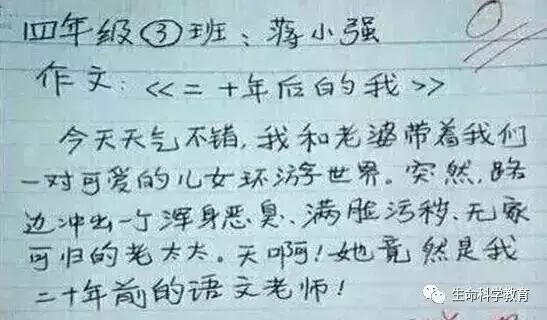 四年级③班：蒋小强
作文：<<二十年后的我>>
今天天气不错，我和老婆带着我们
一对可爱的儿女环游世界。突然，路
边冲出一个浑身恶臭、满脸污秽、无家
可归的老太太。天啊！她竟然是我
二十年前的语文老师！
生命科学教育